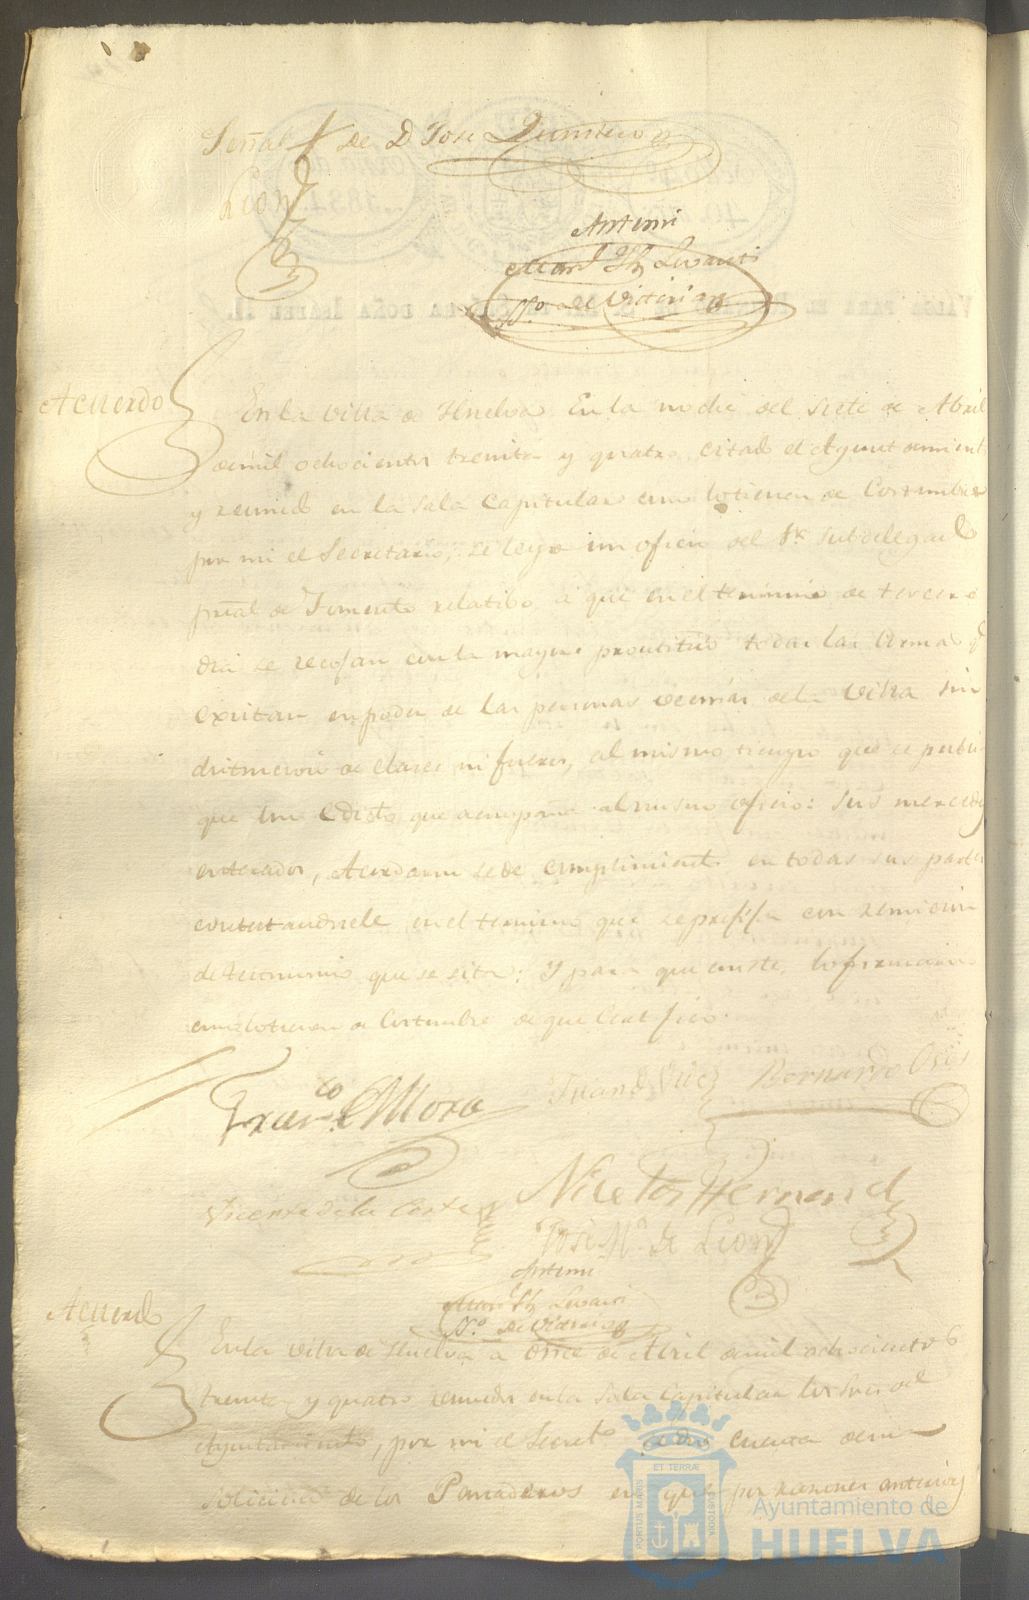 Señal + de D Jose Quintero
Leon
Antemi
de Victoria
Acuerdo
En la villa de Huelva En la noche del siete de Abril
de mil ochocientos treinta y quatro citado el Ayuntamiento
y reunido en la Sala Capitular como lo tienen de Costumbre
por mi el Secretario, se leyo un oficio del Sr Subdelegado
pral de Fomento relatibo a que en el termino de tercero
dia se recojan con la mayor prontitud todas las Armas q
existan en poder de las personas vecinas de la Villa sin
distincion de clases ni fueros, al mismo tiempo que se publi
que un Edicto que acompaña al mismo oficio: sus mercedes
enterados, Acordaron se de cumplimiento en todas sus partes
contestandosele en el termino que se prefija con remicion
de testimonio que se cita: Y para que conste, lo firmaron
como lo tienen de Costumbre de que Certifico.
Franco Mora
Juan Diaz
Bernardo
Vicente de la Corte
Nicolas Hernand
Jose Ma de Leon
Antemi
de Victoria
Acuerdo
En la villa de Huelva a Once de Abril de mil ochocientos
treinta y quatro reunidos en la Sala Capitular los Sres del
Ayuntamiento, por mi el Secreto se dio cuenta de una
solicitud de los Panaderos en que por razones anteriores
VALGA PARA EL REINADO DE S. M. LA SEÑORA DOÑA ISABEL II.
PORTUS MARIS
ET TERRÆ
CUSTODIA
Ayuntamiento de
HUELVA